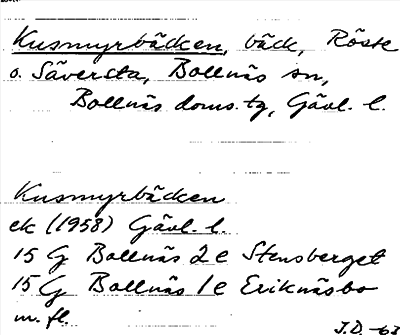 Kusmyrbäcken, bäck, Röste
o. Säversta, Bollnäs sn,
Bollnäs doms. tg, Gävl. l.
Kusmyrbäcken
ek (1958) Gävl. l.
15 G Bollnäs 2 e Stensberget
15 G Bollnäs 1 e Eriknäsbo
m. fl.
J.D. -63